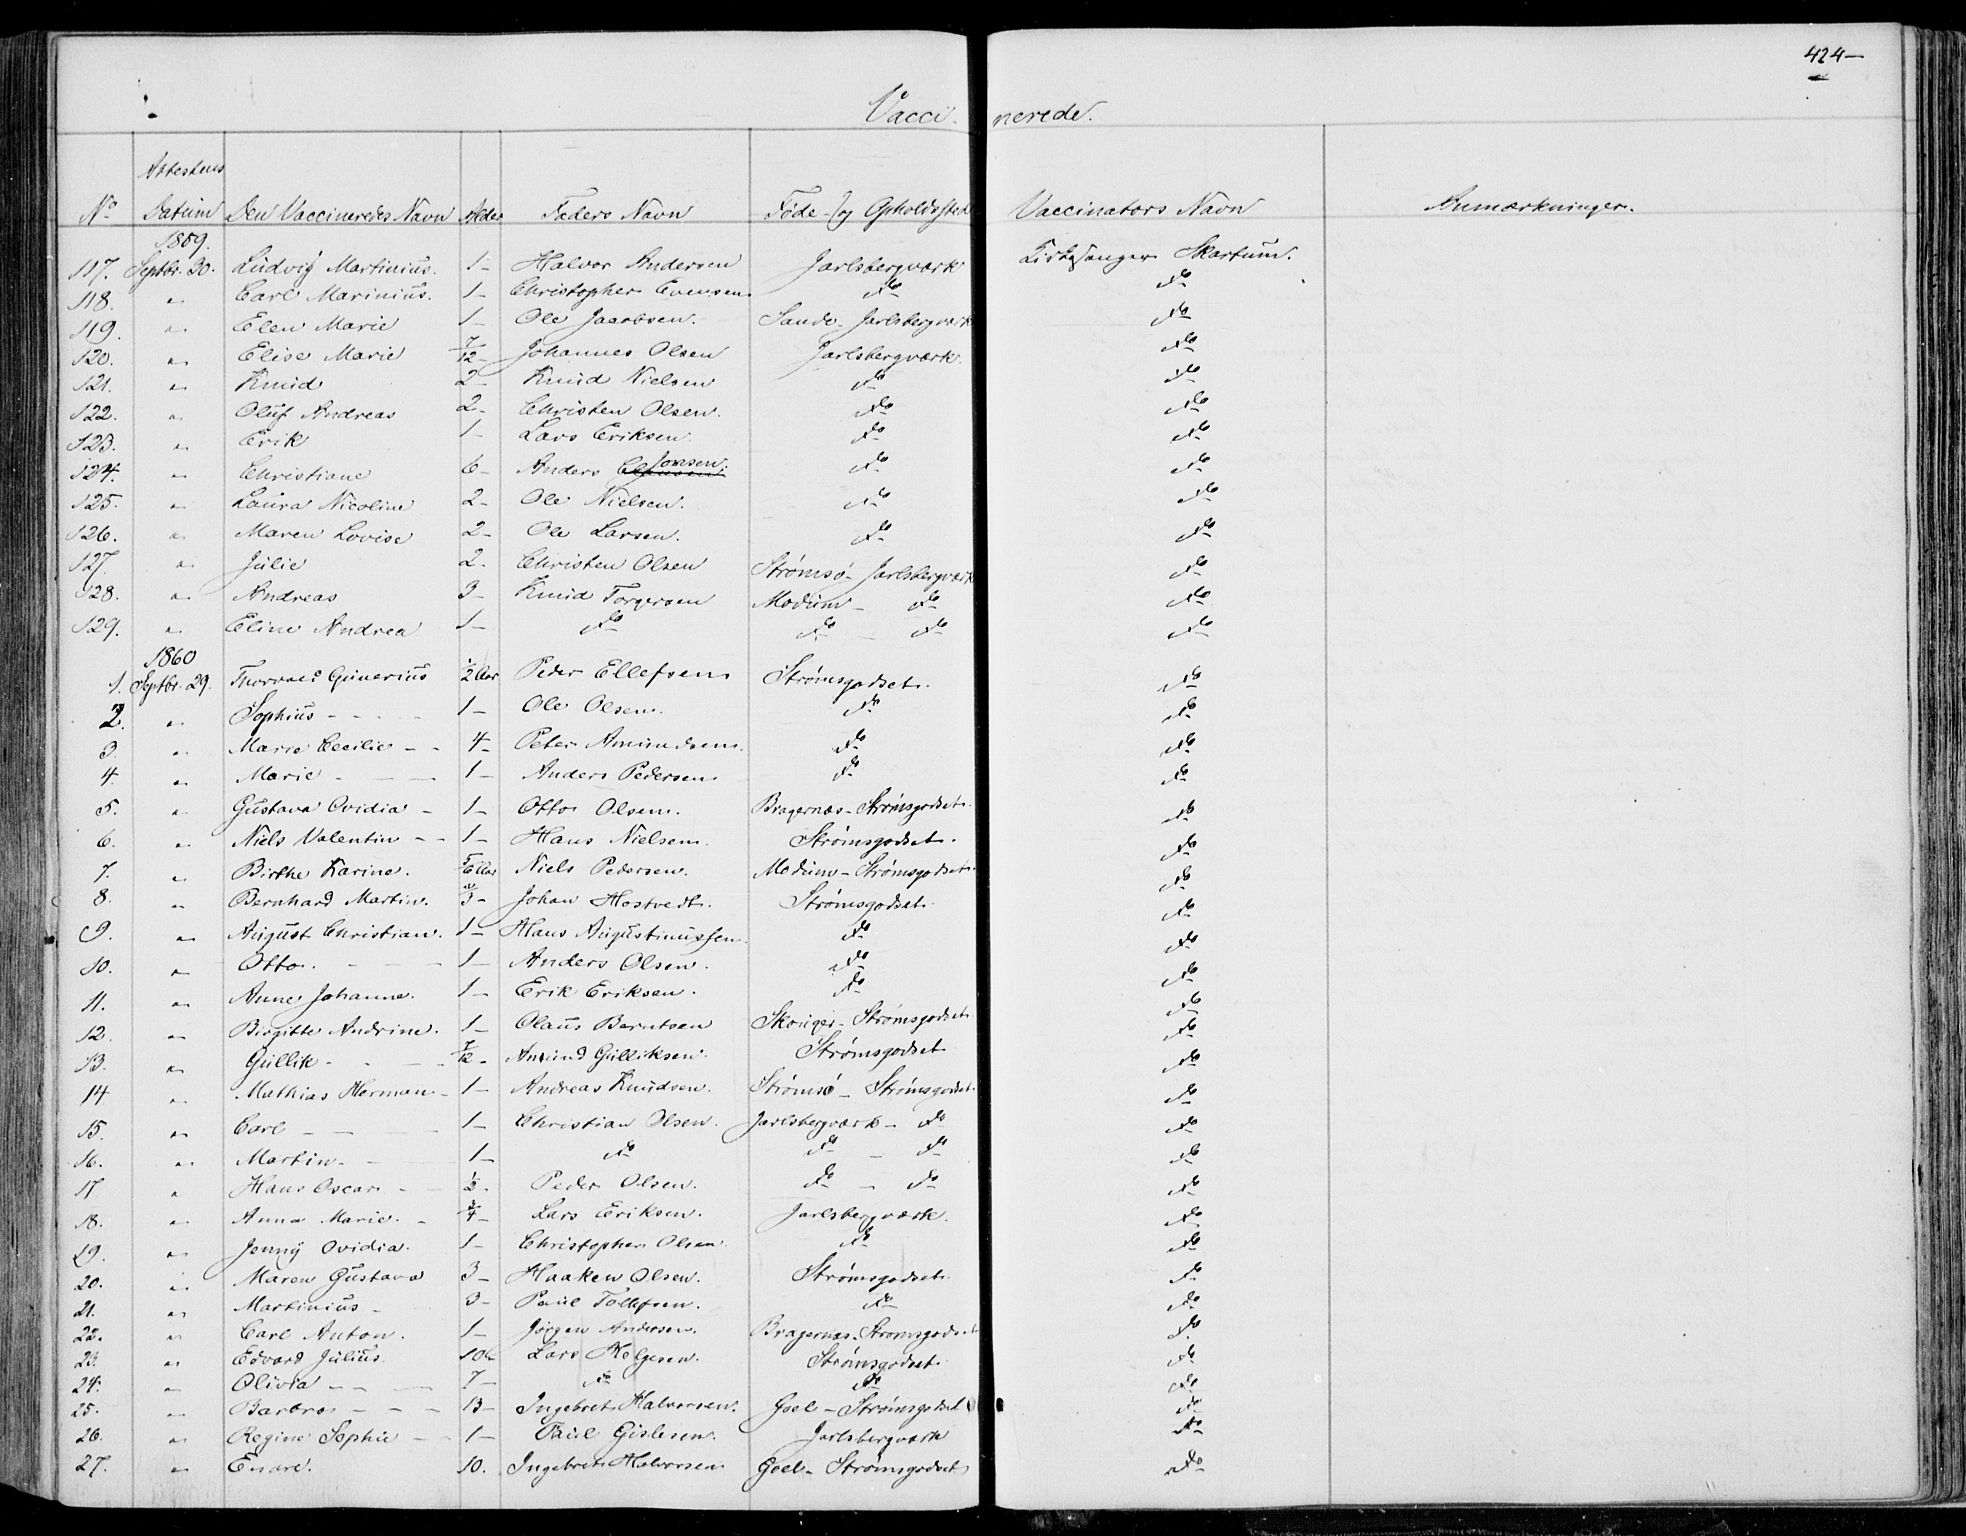 424—
Vaccinerede.
No Attestens Datum Den Vaccineredes Navn Alder Faders Navn Føde- og Opholdssted Vaccinators Navn Anmærkninger.
1859.
117. Septbr. 30. Ludvig Martinius. 1- Halvor Andersen Jarlsbergværk Kirkesanger Skartum.
118. " Carl Marinius. 1- Christopher Evensen do do
119. " Elen Marie 1- Ole Jacobsen. Sande- Jarlsbergværk do
120. " Elise Marie 7/12- Johannes Olsen Jarlsbergværk. do
121. " Knud 2- Knud Nielsen do do
122. " Oluf Andreas 2- Christen Olsen. do do
123. " Erik 1- Lars Eriksen. do do
124. " Christiane 6- Anders Jonsen. do do
125. " Laura Nicoline 2- Ole Nielsen. do do
126. " Maren Lovise 2- Ole Larsen. do do
127. " Julie 2- Christen Olsen Strømsø- Jarlsbergværk do
128. " Andreas 3- Knud Torgersen Modum- do do
129. " Eline Andrea 1- do do - do do
1860
1. Septbr. 29. Thorvald Gunerius 1/2 Aar Peder Ellefsen Strømsgodset. do
2. " Sophius - - 1- Ole Olsen. do do
3. " Marie Cecilie - - 4- Peter Amundsen. do do
4. " Marie - - 1- Anders Pedersen. do do
5. " Gustava Ovidia - 1- Otto Olsen. Bragernæs- Strømsgodset. do
6. " Niels Valentin - - 1- Hans Nielsen. Strømsgodset. do
7. " Birthe Karine. Niels Pedersen. Modum- Strømsgodset. do
8. " Bernhard Martin. Johan Hostvedt. Strømsgodset. do
9. " August Christian. 1- Hans Augustinussen. do do
10. " Otto. - - 1- Anders Olsen. do do
11. " Anne Johanne. 1- Erik Eriksen. do do
12. " Birgitte Andrine. 1- Olaus Berntsen Skouger- Strømsgodset do
13. " Gullik - - 7/12- Amund Gulliksen. Strømsgodset do
14 " Mathias Herman- 1- Andreas Knudsen. Strømsø- Strømsgodset. do
15. " Carl - - 1- Christian Olsen. Jarlsbergværk- do do
16. " Martin. - 1- do do - do do
17 " Hans Oscar - 1/2- Peder Olsen. do - do do
18. " Anna Marie. - 3/4- Lars Eriksen. Jarlsbergværk. do
19. " Jenny Ovidia. 1- Christopher Olsen do do
20. " Maren Gustava 3- Haaken Olsen. Strømsgodset. do
21. " Martinius - 3- Paul Tollefsen. do do
22. " Carl Anton. 1- Jørgen Andersen. Bragernæs- Strømsgodset do
23. " Edvard Julius. 10- Lars Helgesen. Strømsgodset do
24. " Olivia - - 7- do do do
25. " Barbro - - - 13- Ingebret Halvorsen. Goel- Strømsgodset do
26. " Regine Sophie - - 1- Paul Gislesen. Jarlsbergværk do
27. " 10. Ingebret Halvorsen Goel- Strømsgodset do